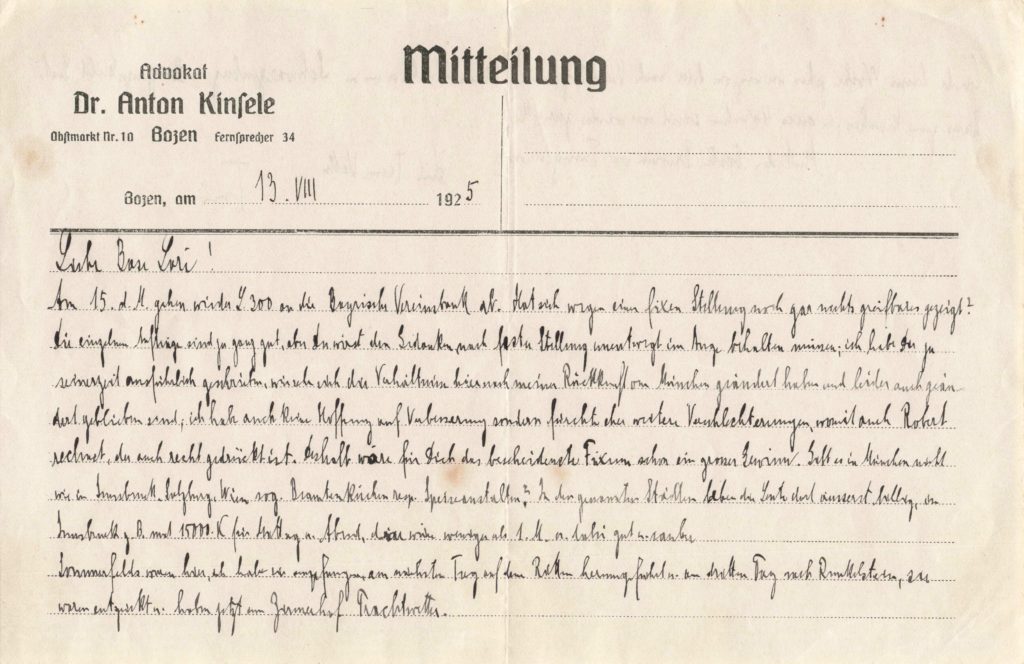 Mitteilung
Advokat
Dr. Anton Kinsele
Obstmarkt Nr. 10 Bozen Fernsprecher 34
Bozen, am 13. VIII 1925
Liebe Lori!
Am 15. d. M. gehen wieder 300 an die Bayrische Vereinsbank ab. Hat sich wegen einer fixen Stellung noch gar nichts greifbares gezeigt?
Die einzelnen Aufträge sind ja ganz gut, aber Du wirst den Gedanken nach fester Stellung unentwegt im Auge behalten müssen; ich habe Dir ja
seinerzeit ausführlich geschrieben, wie sich die Verhältnisse hier nach meiner Rückkunft von München geändert haben und leider auch geän-
dert geblieben sind; ich habe auch keine Hoffnung auf Verbesserung sondern fürchte eher weitere Verschlechterungen, womit auch Robert
rechnet, der auch recht gedrückt ist. Deshalb wäre für Dich das bescheidenste Fixum schon ein grosser Gewinn. Gibt es in München nicht
wie in Innsbruck, Salzburg, Wien sog. Beamtenküchen resp. Speiseanstalten? In den genannten Städten leben die Leute dort äusserst billig, in
Innsbruck z. B. mit 15000 K für Mittag u. Abend, weniger als 1. M. u. gut u. sauber
Sommerfelds waren hier, ich habe sie empfangen, am nächsten Tag auf dem Ritten herumgeführt u. am dritten Tag nach Runkelstein, sie
waren entzückt u. haben jetzt am Zermerhof Prachtwetter.